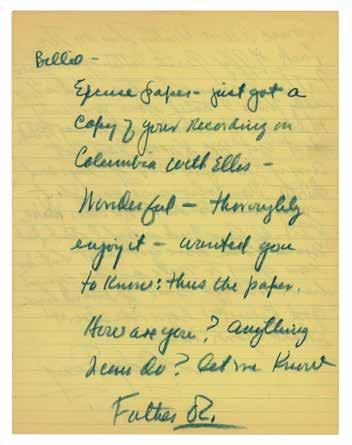 Billie -
Excuse paper - just got a
copy of your recording on
Columbia with Ellis -
Wonderful - thoroughly
enjoy it - wanted you
to know: thus the paper.
How are you? Anything
I can do? Let me know
Father O'.